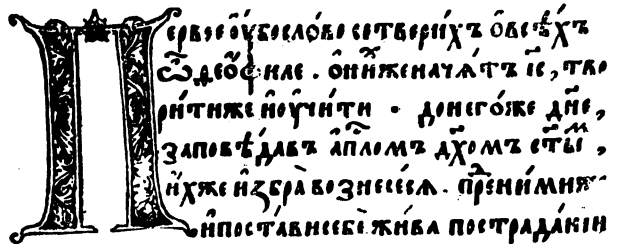 Первое оу҆бо сло́во сотвори́хъ ѻ҆ всѣ́хъ
ѽ де҆ѻ҆филе . ѻ҆ ни́хже начѧ́тъ і҆с҃, тво
ри́ти же и҆ оу҆чи́ти · до него́же дн҃е,
заповѣ́давъ а҆пⷭ҇ломъ дх҃омъ ст҃ыⷨ ,
и҆́хже и҆збра̀ вознесе́сѧ . пре́д ними же
и҆ поста́ви себѐ жи́ва по страда́нїи